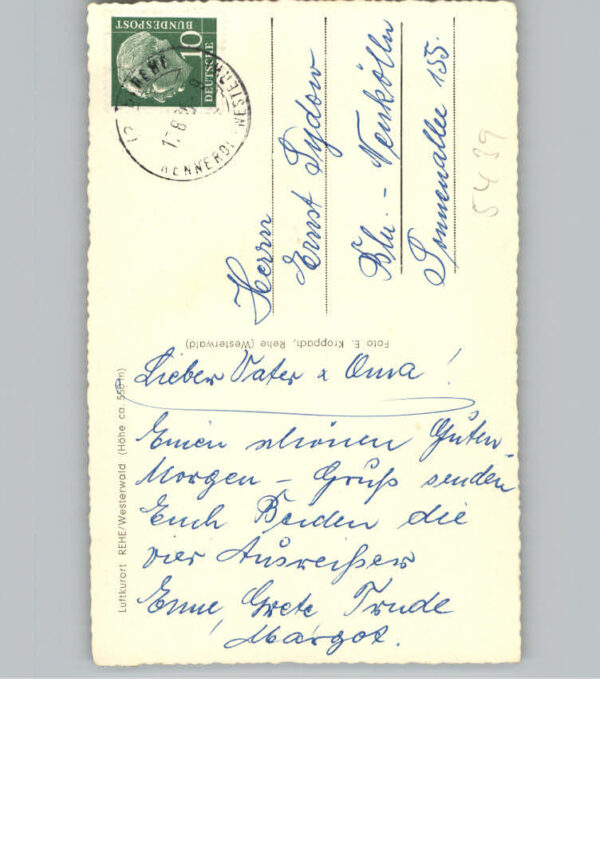 10
DEUTSCHE
BUNDESPOST
REHE
Herrn
Ernst Sydow
Bln. - Neukölln
Sonnenallee 155.
5439
Foto E. Kroppach, Rehe (Westerwald)
Luftkurort REHE/Westerwald (Höhe ca. 550 m)
Lieber Vater & Oma!
Einen schönen Guten-
Morgen - Gruß senden
Euch Beiden die
vier Ausreißer
Enne, Grete Trude
Margot.